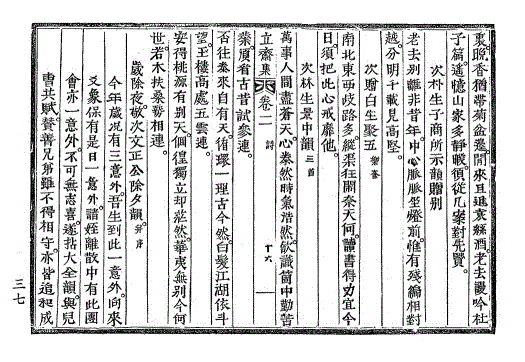 裛晚香猶帶菊盆邊開來且進袁縣酒老去謾吟杜
子篇遙憶山家多靜暇須從几案對先賢
次朴生子商所示韻贈別
老去別離非昔年中心脈脈坐燈前惟有殘編相對
越分明十載見高堅
次贈白生聚五
南北東西歧路多縱渠狂鬧柰天何讀書得力宜今
日須把此心戒靡他
次林生景中韻 三首
萬事人間盡蒼天心泰然時氣浩然飮識箇中勤苦
立齋集 卷二 詩 十六
業須看古昔試參連
否往泰來自有天循環一理古今然白髮江湖依斗
望玉樓高處五雲連
安得桃源有別天個徨獨立却茫然華夷無別今何
世若木扶桑務相連
歲除夜敬次文正公除夕韻 幷序
今年歲況有三意外吾生到此一意外向來
爻象保有是日一意外諸姪離散中有此團
會亦一意外不可無志喜遂拈大全韻與兒
曹共賦贊善兄弟雖不得相守亦皆追和成
三七